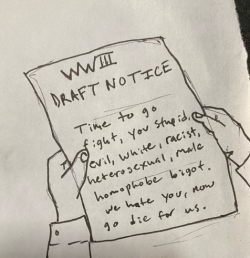 WWIII
DRAFT NOTICE
Time to go
fight, you stupid,
evil, white, racist,
heterosexual, male
homophobe bigot.
we hate you, now
go die for us.